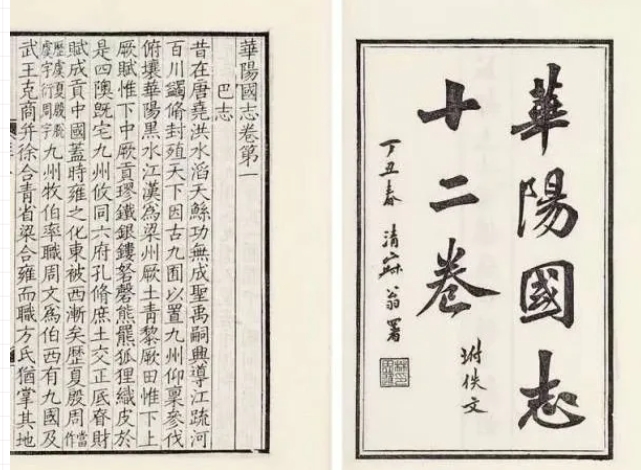 華陽國志
十二卷
坿佚文
丁丑春 清寐翁署
華陽國志卷第一
巴志
昔在唐堯洪水滔天鯀功無成聖禹嗣興導江疏河
百川蠲脩封殖天下因古九囿以置九州仰稟參伐
俯壤華陽黑水江漢為梁州厥土青黎厥田惟下上
厥賦惟下中厥貢璆鐵銀鏤砮磬熊羆狐狸織皮於
是四隩既宅九州攸同六府孔脩庶土交正厎眘財
賦成貢中國蓋時雍之化東被西漸矣歷夏殷周當作
歷虞夏殷虞字行周字九州牧伯率職周文為伯西有九國及
武王克商并徐合青省梁合雍而職方氏猶掌其地